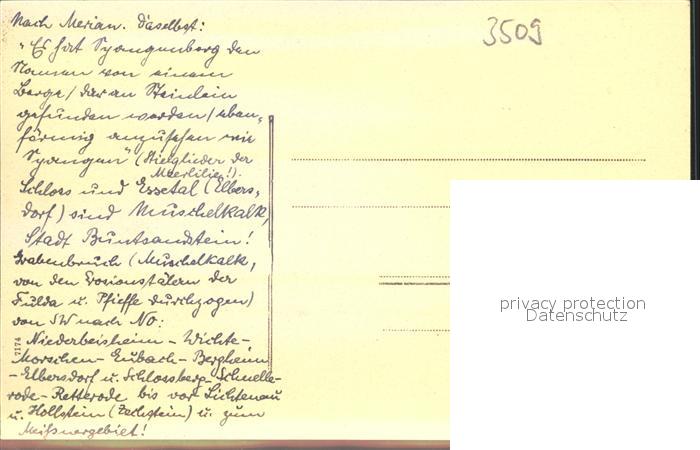 Nach Merian. Daselbst:
"Es hat Spangenberg den
Namen von einem
Berge / daran Steinlein
gefunden werden / eben,
förmig anzusehen wie
Spangen" (Stielglieder der
Meerlilie!).
Schloss und Essetal (Elbers,
dorf) sind Muschelkalk,
Stadt Buntsandstein!
Grabenbruch (Muschelkalk,
von den Erosionstälern der
Fulda u. Pfieffe durchzogen)
von SW nach NO:
Niederbeisheim - Wichte -
Morschen - Eubach - Bergheim
- Elbersdorf u. Schlossberg - Schnelle-
rode - Retterode bis vor Lichtenau
u. Hollstein (Zechstein) u. zum
Meißnergebiet!
3509
7174
privacy protection
Datenschutz